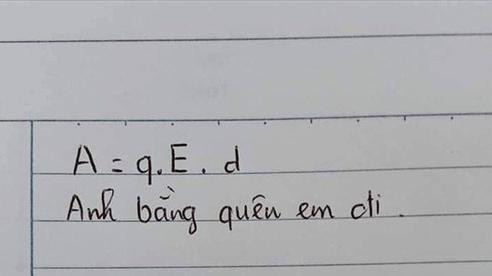 A = q.E.d
Anh bằng quên em đi.